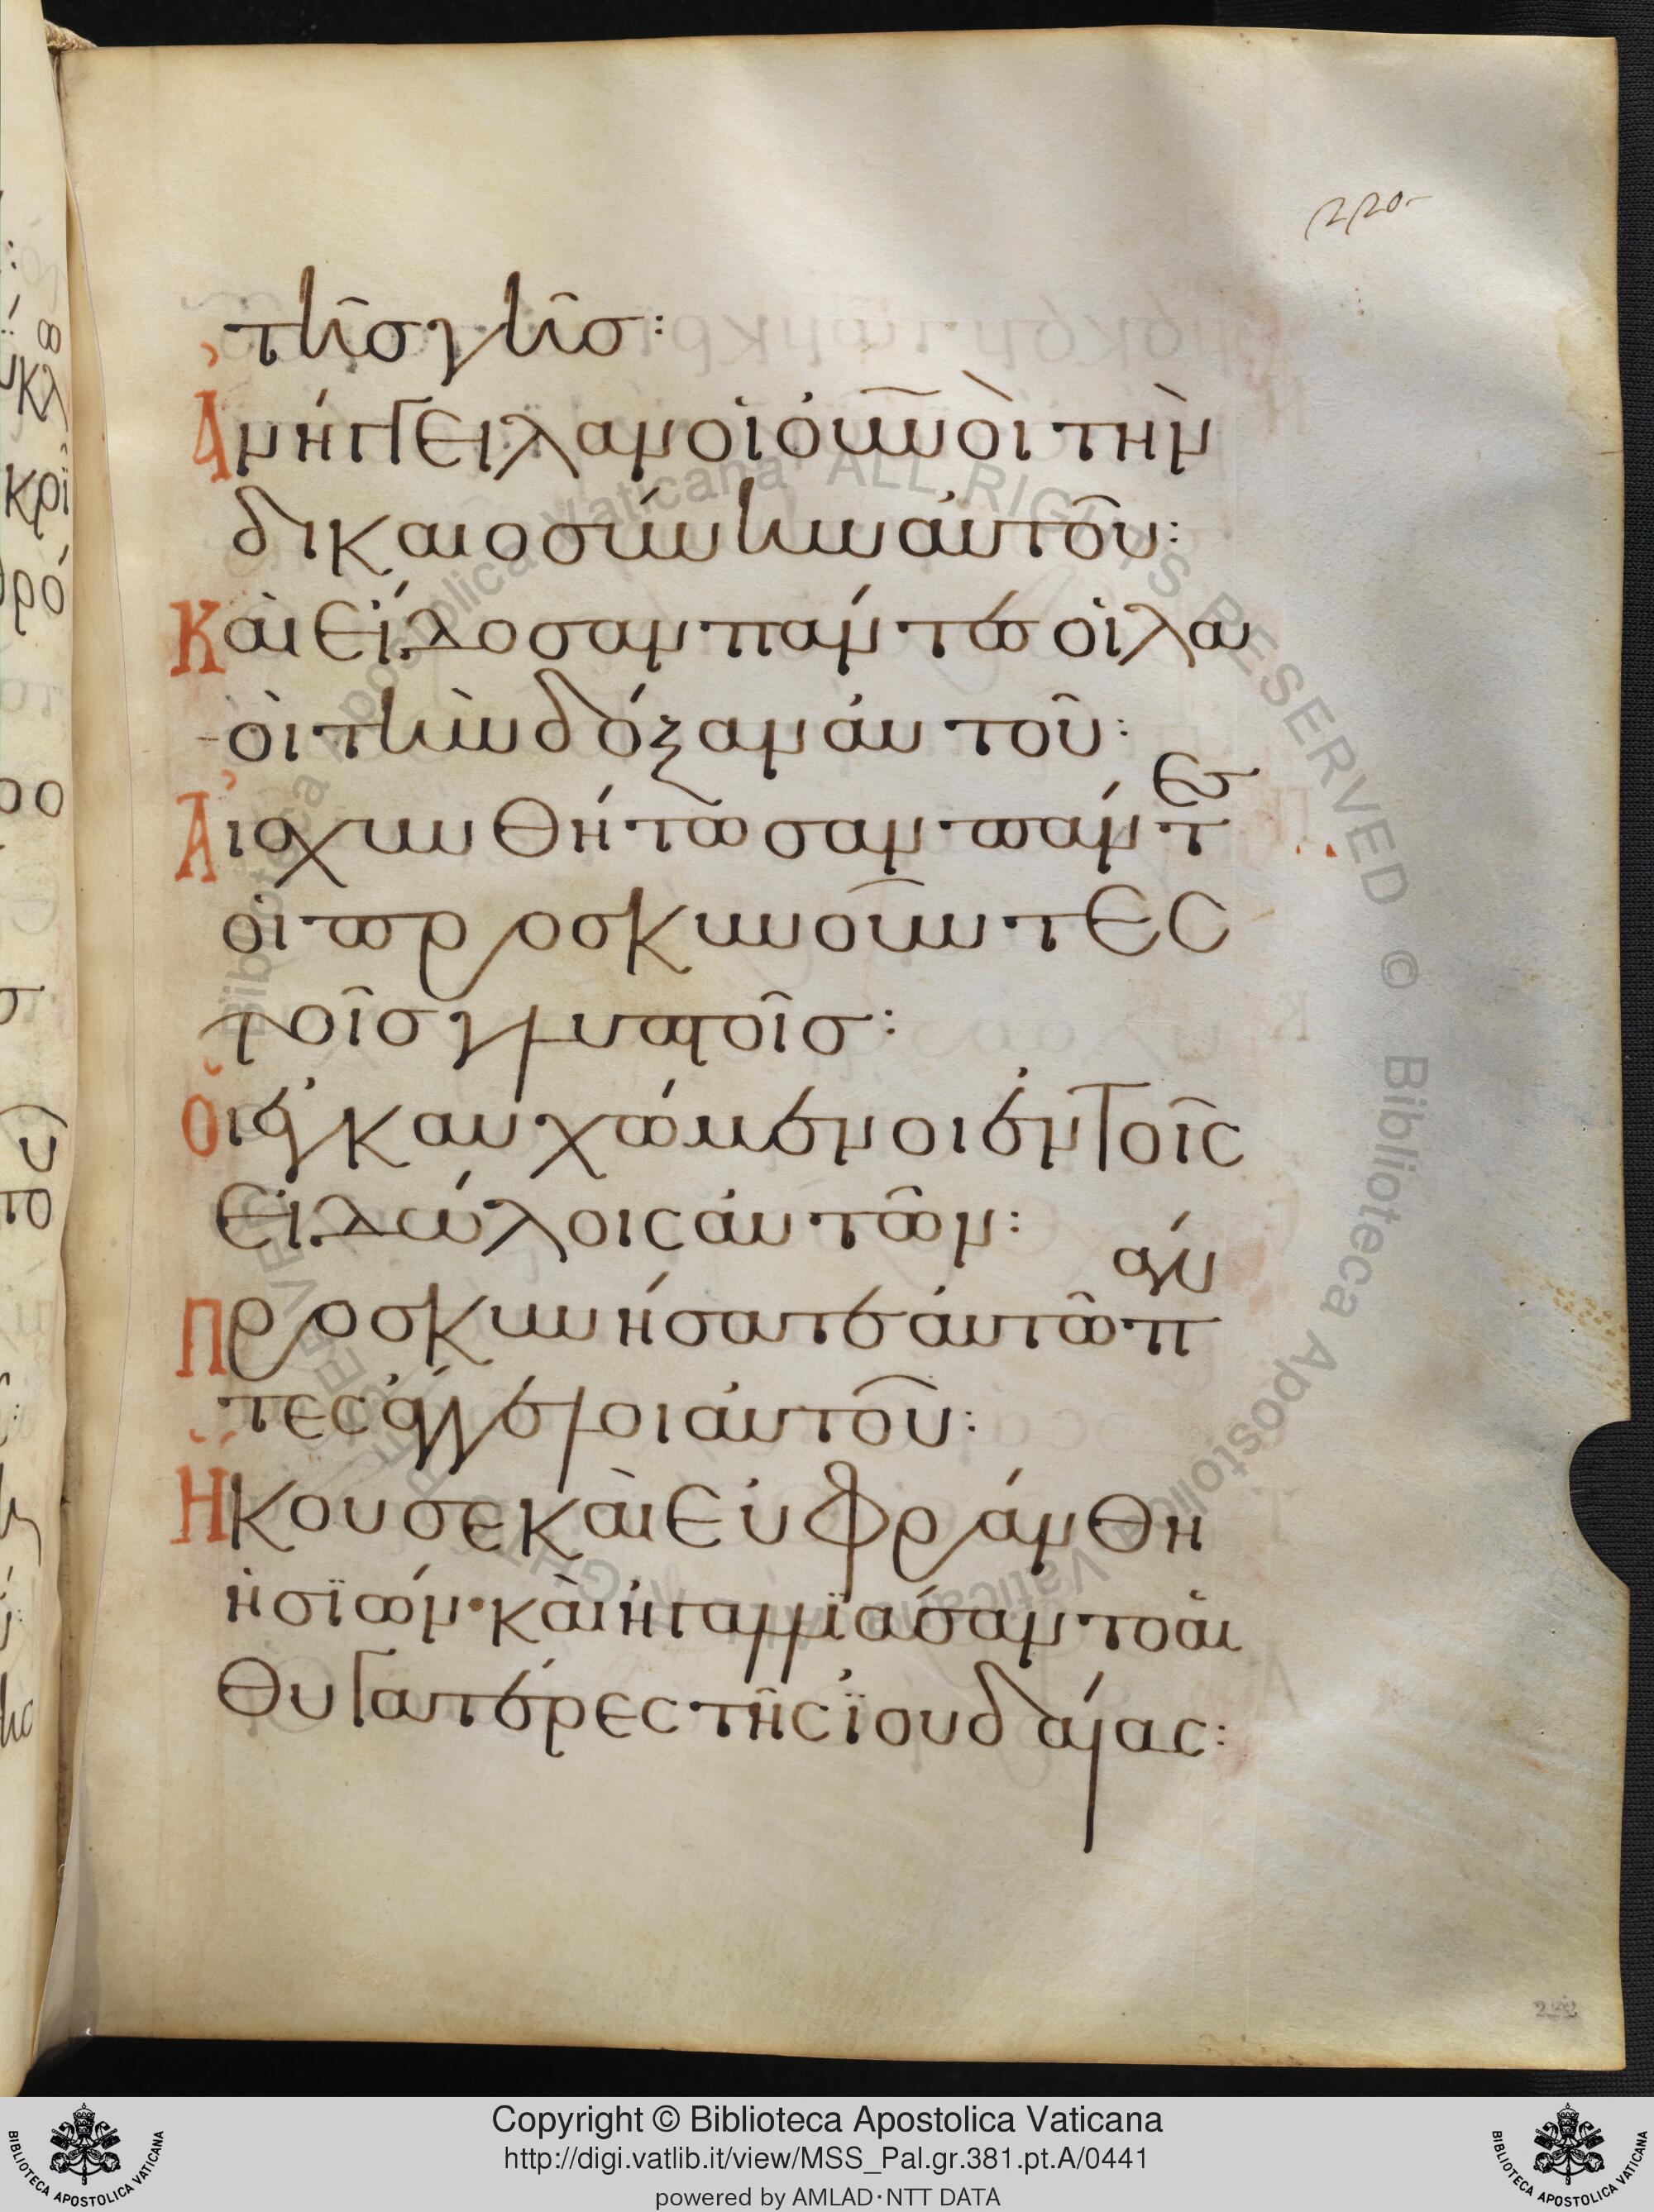 220
τῆς γῆς:
Ἀνήγγειλαν οἱ οὐνοὶ τὴν
δικαιοσύνην αὐτοῦ:
Καὶ εἴδοσαν πάντες οἱ λα
οὶ τὴν δόξαν αὐτοῦ:
Αἰσχυνθήτωσαν πάντες
οἱ προσκυνοῦντες
τοῖς γλυπτοῖς:
Οἱ ἐγκαυχώμενοι ἐν τοῖς
εἰδώλοις αὐτῶν:
Προσκυνήσατε αὐτῶ πάν
τες ἄγγελοι αὐτοῦ:
Ἤκουσε καὶ εὐφράνθη
ἡ σϊών· καὶ ἠγαλλϊάσαντο αἱ
θυγατέρες τῆς ϊουδαίας:
Copyright © Biblioteca Apostolica Vaticana
http://digi.vatlib.it/view/MSS_Pal.gr.381.pt.A/0441
powered by AMLAD·NTT DATA
BIBLIOTECA APOSTOLICA VATICANA
BIBLIOTECA APOSTOLICA VATICANA